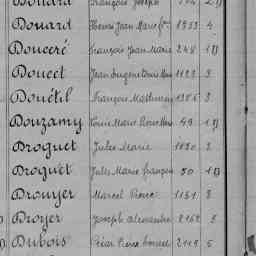 Douard François Joseph
Douard Henri Jean Marie 1953 4
Douceré François Jean Marie 248 1
Doucet Jean Eugène Louis 1123 3
Douétil François Mathurin 3
Douzamy Louis Marie 49 1
Droguet Jules Marie 1030 3
Droguet Jules Marie François 50 1
Drouyer Marcel Pierre 1131 3
Droyer Joseph Alexandre 2162 5
Dubois Pierre 2119 5